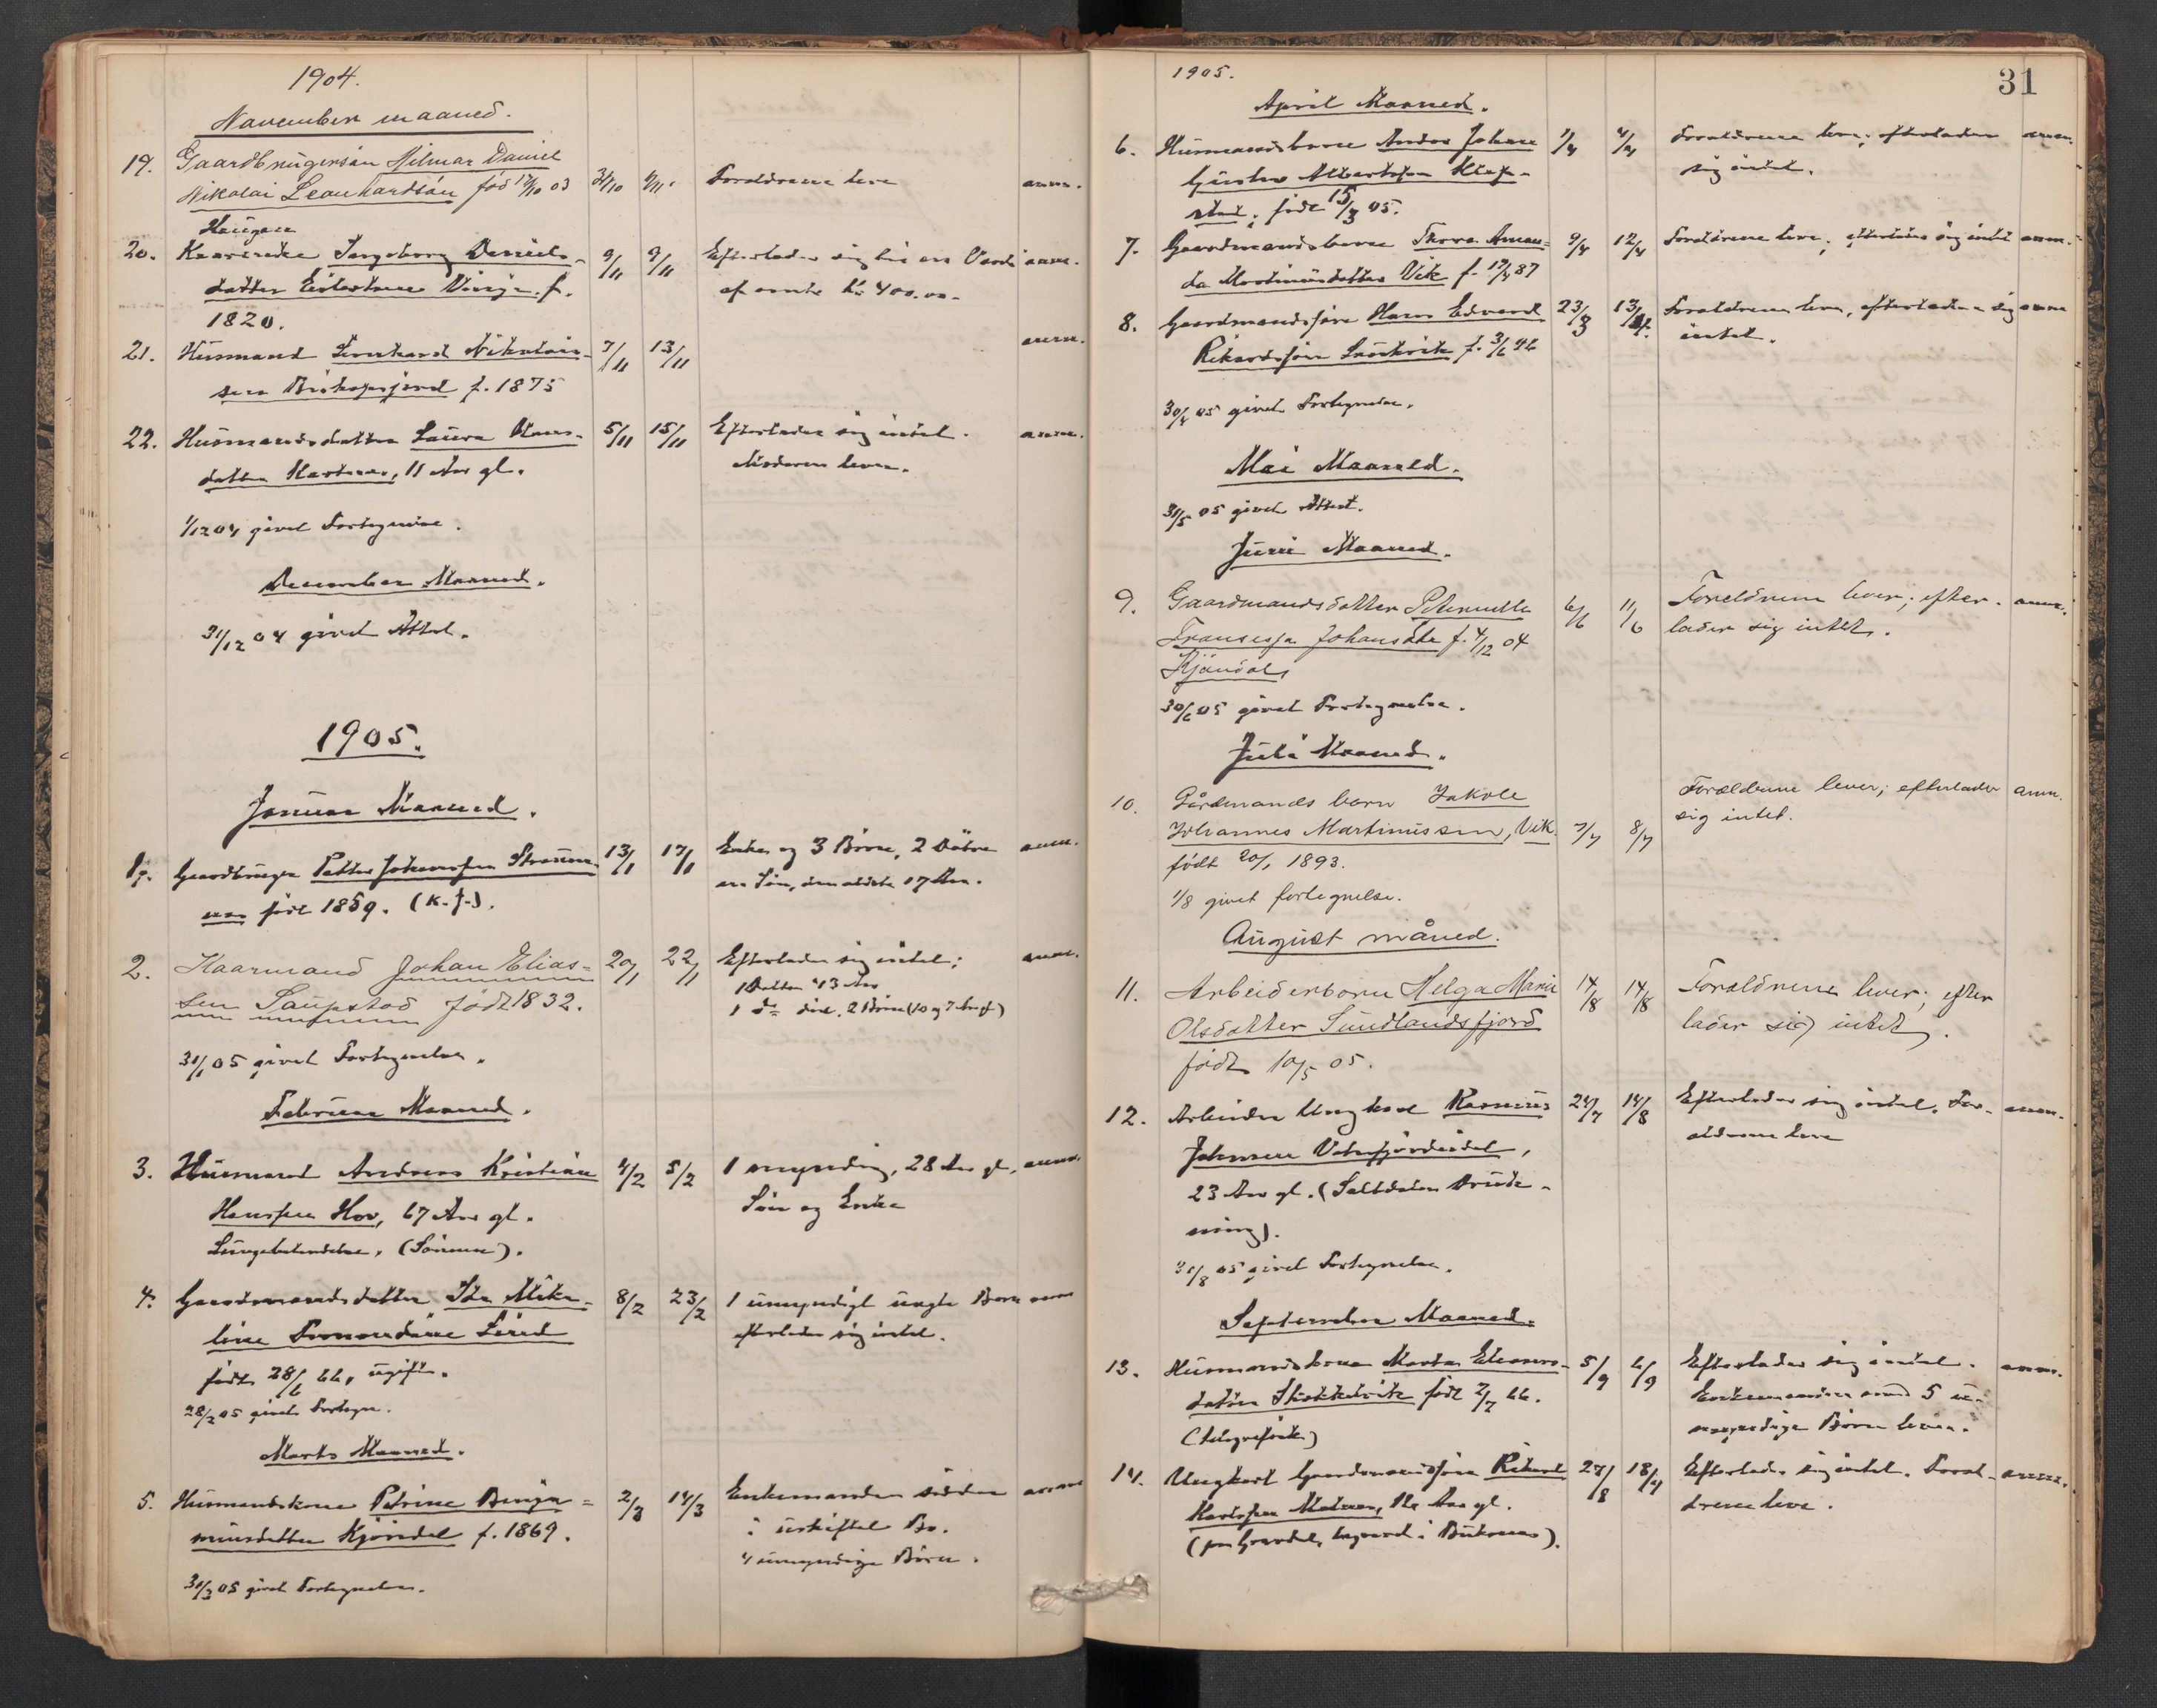 1904.
November maaned.
19. Gaardbrugersøn Hilmar Daniel 31/10 9/11 Forældrene leve anm.
Nikolai Leonhardsøn fød 17/10 03
Haugen
20. Ingeborg Daniels- 9/11 9/11 Efterlader sig anm.
datter f. af Kr 400.00
1820.
21. Husmand Leonhard Nikolai- 7/11 13/11 anm.
sen f. 1875
22. Husmandsdatter Laura Hans- 5/11 15/11 Efterlader sig intet. anm.
datter 11 Aar gl. Moderen lever.
1/12 04 givet Fortegnelse.
December Maaned.
31/12 04 givet Attest.
1905.
Januar Maaned.
1. Gaardbruger Petter Johansen 13/1 17/1 Enke og 3 Børn, 2 Døtre anm.
født 1859. (K.f.). en Søn, den ældste 17 Aar.
2. Kaarmand Johan Elias- 20/1 22/1 Efterlader sig intet; anm.
sen Saupstad født 1832. 1 Datter 43 Aar
1 do død, 2 Børn (10 og 7 Aar)
31/1 05 givet Fortegnelse.
Februar Maaned.
3. Husmand Andreas Kristian 4/2 5/2 1 myndig, 28 Aar gl. anm.
Hansen Hov, 67 Aar gl. Søn og Enke
Lungebetændelse. (Sønnen).
4. Gaardmandsdatter Ida Mika- 8/2 23/2 1 umyndigt uægte Barn anm
line efterlader sig intet.
født 28/6 66, ugift.
28/2 05 givet Fortegn.
Marts Maaned.
5. Husmandskone Petrine Benja- 2/3 14/3 Enkemanden sidder anm
minsdatter Kjøndal f. 1869. i uskiftet Bo.
4 umyndige Børn.
31/3 05 givet Fortegnelse.
1905. 31
April Maaned.
6. Husmandsbarn Andor Johan 1/4 4/4 Forældrene leve; efterlader anm.
Gustav Albertsen Klep- sig intet.
stad, født 15/3 05.
7. Gaardmandsbarn Thora Aman- 9/4 12/4 Forældrene leve, efterlader sig intet anm.
da Martinusdatter Vik f. 17/4 87
8. Gaardmandssøn Hans Edvard 23/3 13/4 Forældrene leve, efterlader sig anm
Rikardsen f. intet.
30/4 05 givet Fortegnelse.
Mai Maaned.
31/5 05 givet Attest.
Juni Maaned.
9. Gaardmandsdatter Peternille 6/6 11/6 Foreldrene lever; efter- anm.
Fransesja Johansdtr f. 4/12 04 lader sig intet.
Kjøndal
30/6 05 givet Fortegnelse.
Juli Maaned.
10. Gårdmands barn Jakole Forældrene lever; efterlader anm.
Johannes Martinussen, Vik. 7/7 8/7 sig intet.
født 20/1 1893.
1/8 givet fortegnelse.
August måned.
11. Arbeiderbarn Helga Marie 14/8 14/8 Forældrene lever; efter
Olsdatter Sundlandsfjord lader sig intet.
født 10/5 05.
12. Arbeider Ungkarl Rasmus 24/7 14/8 Efterlader sig intet. For- anm.
Johnsen Vaterfjordeidet, ældrene leve
23 Aar gl. (Saltdalen Druk-
ning).
31/8 05 givet Fortegnelse.
September Maaned.
13. Husmandskone Marta 5/9 6/9 Efterlader sig intet. anm.
datter født 2/7 66. Enkemanden med 5 u-
myndige Børn lever.
14. Ungkarl Gaardmandssøn Rikard 27/8 18/9 Efterlader sig intet. Foræl- anm.
Karlsen Aar gl. drene leve.